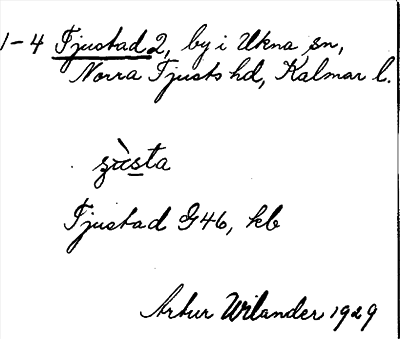 1-4 Tjustad 2, by i Ukna sn,
Norra Tjusts hd, Kalmar l.
Tjustad G46, kb
Artur Wilander 1929